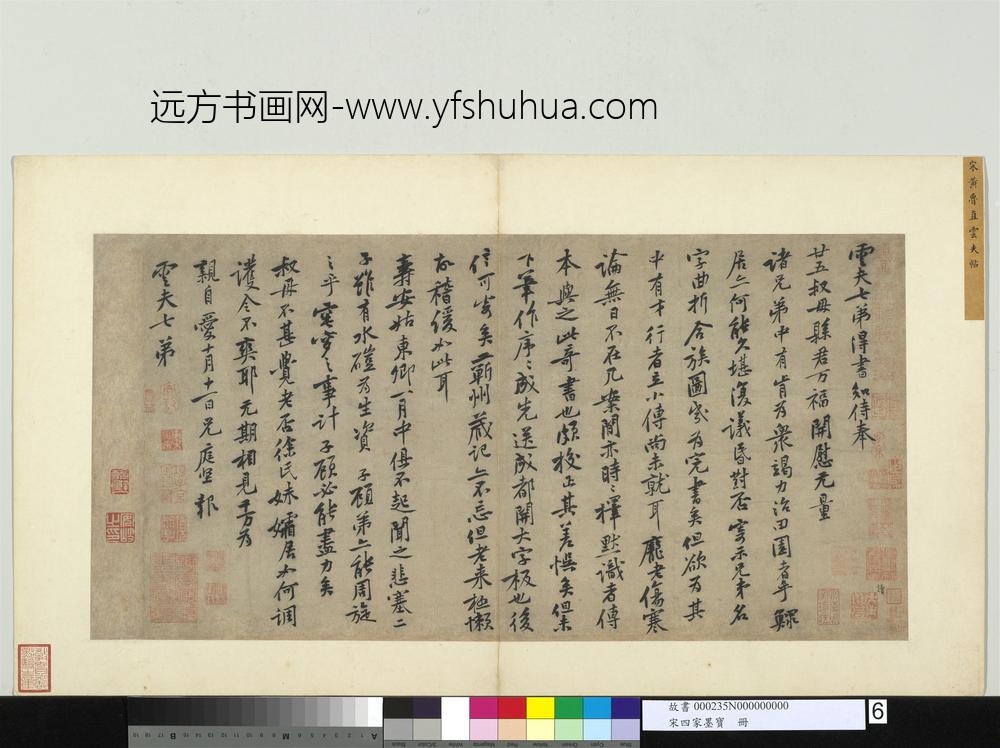 远方书画网-www.yfshuhua.com
宋黄魯直雲夫帖
雲夫七弟得書知侍奉
廿五叔母縣君万福開慰无量
諸兄弟中有肯為衆竭力治田園者乎鰥
居亦何能久堪復議昏對否寄示兄弟名
字曲折合族圖岁為完書矣但欲為其
中有才行者立小傳尚未就耳龐老傷寒
論無日不在几案間亦時〻擇默識者傳
本與之此奇書也頗校正其差悮矣但未
下筆作序〻成先送成都開大字板也後
信可寄矣蘄州藏記亦不忘但老来極懶
故稽緩如此耳
壽安姑東卿一月中俱不起聞之悲塞二
子雖有水磑為生資子顧弟亦能周旋
之乎窀穸之事計子顧必能盡力矣
叔母不甚覺老否徐氏妹孀居如何調
護令不爽耶无期相見千万為
親自愛十月十一日兄庭堅報
雲夫七弟
故書 000235N000000000
宋四家墨寶 冊
6